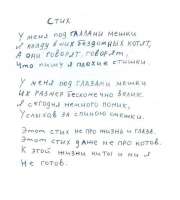 Стих
У меня под глазами мешки
Я кладу в них бездомных котят,
А они говорят, говорят,
Что пишу я плохие стишки.
У меня под глазами мешки
Их размер бесконечно велик.
Я сегодня немного поник,
Услыхав за спиною смешки.
Этот стих не про жизнь и глаза.
Этот стих даже не про котов.
К этой жизни киты и ни я
Не готов.